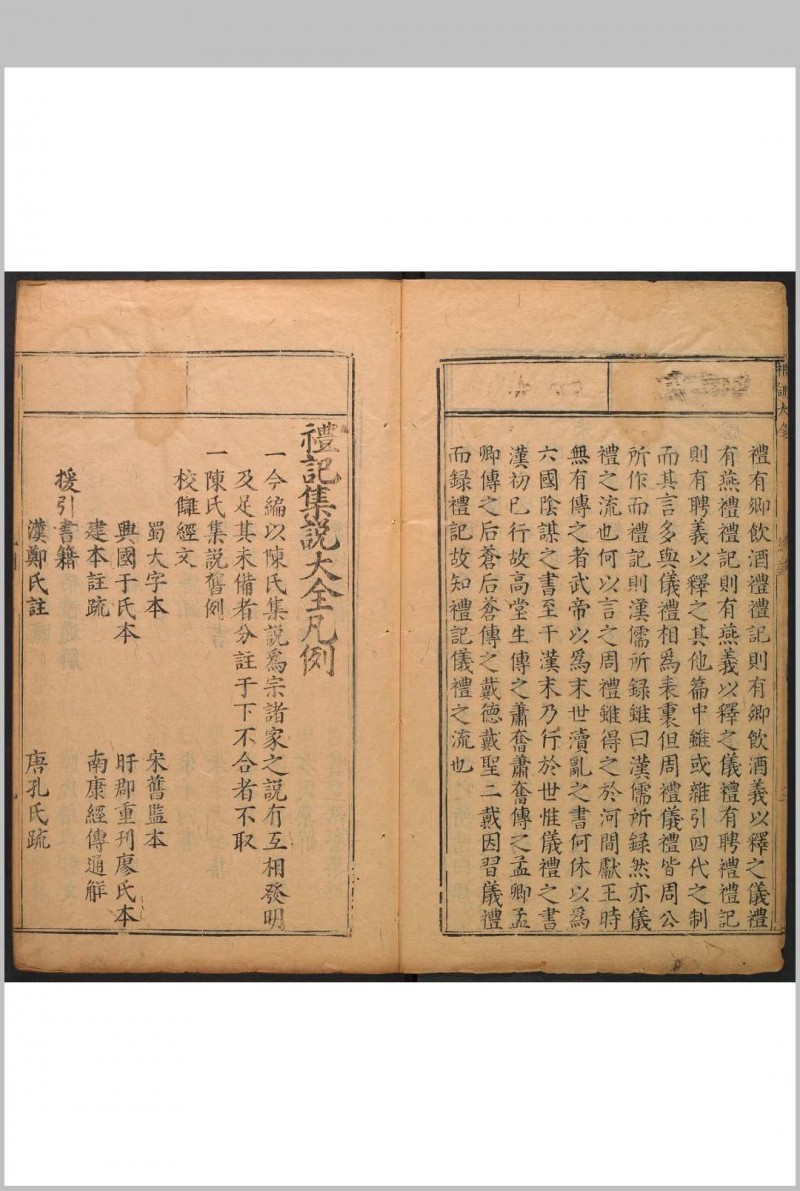 禮有鄉飲酒禮禮記則有鄉飲酒義以釋之儀禮
有燕禮禮記則有燕義以釋之儀禮有聘禮禮記
則有聘義以釋之其他篇中雖或雜引四代之制
而其言多與儀禮相爲表裏但周禮儀禮皆周公
所作而禮記則漢儒所録雖曰漢儒所録然亦儀
禮之流也何以言之周禮雖得之於河間獻王時
無有傳之者武帝以爲末世瀆亂之書何休以爲
六國陰謀之書至于漢末乃行於世惟儀禮之書
漢初已行故高堂生傳之蕭奮蕭奮傳之孟卿孟
卿傳之后蒼后蒼傳之戴德戴聖二戴因習儀禮
而録禮記故知禮記儀禮之流也
禮記集說大全凡例
一今編以陳氏集説爲宗諸家之説有互相發明
及足其未備者分註于下不合者不取
一陳氏集説舊例
校讎經文
蜀大字本 宋舊監本
興國于氏本 盱郡重刊廖氏本
建本註疏 南康經傳通解
援引書籍
漢鄭氏註 唐孔氏疏